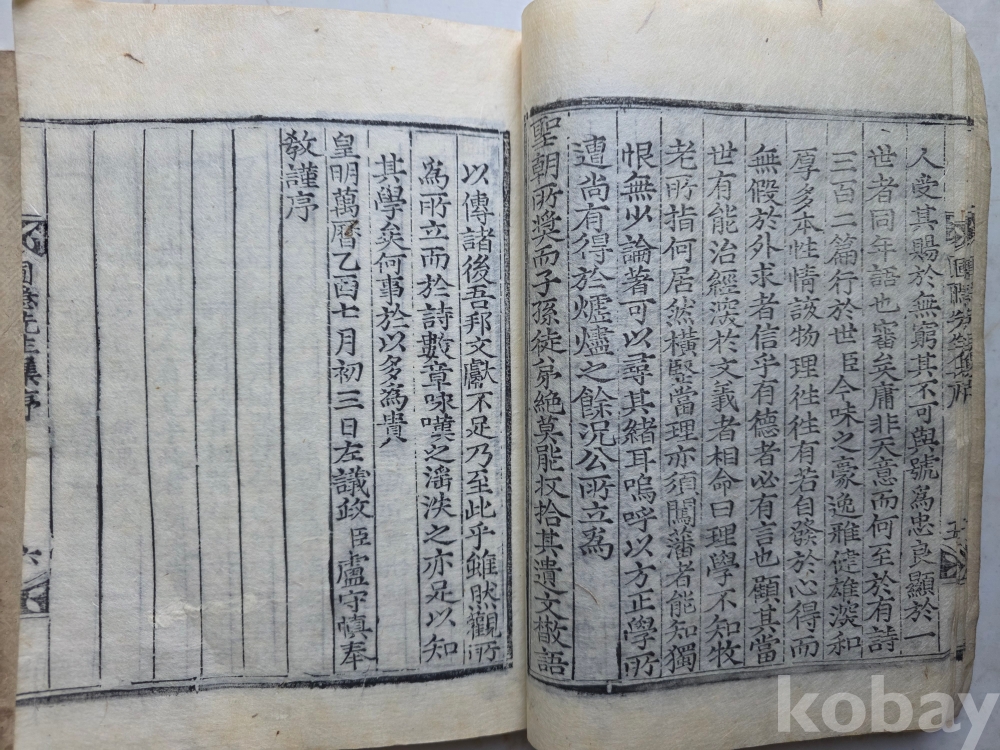 人受其賜於無窮其不可與號為忠良顯於一
世者同年語也審矣庸非天意而何至於有詩
三百二篇行於世臣今味之豪逸雅健雄深和
厚多本性情該物理徃徃有若自發於心得而
無假於外求者信乎有德者必有言也顧其當
世有能治經深於文義者相命曰理學不知牧
老所指何居然橫竪當理亦須闖藩者能知獨
恨無少論著可以尋其緒耳嗚呼以方正學所
遭尚有得於爐燼之餘況公所立為
聖朝所奬而子孫徒弟絶莫能收拾其遺文散語
以傳諸後吾邦文獻不足乃至此乎雖然觀所
為所立而於詩數章咏嘆之滛泆之亦足以知
其學矣何事於以多為貴
皇明萬曆乙酉七月初三日左議政臣盧守愼奉
敎謹序
圃隱先生集序
五
圃隱先生集序
六
kobay